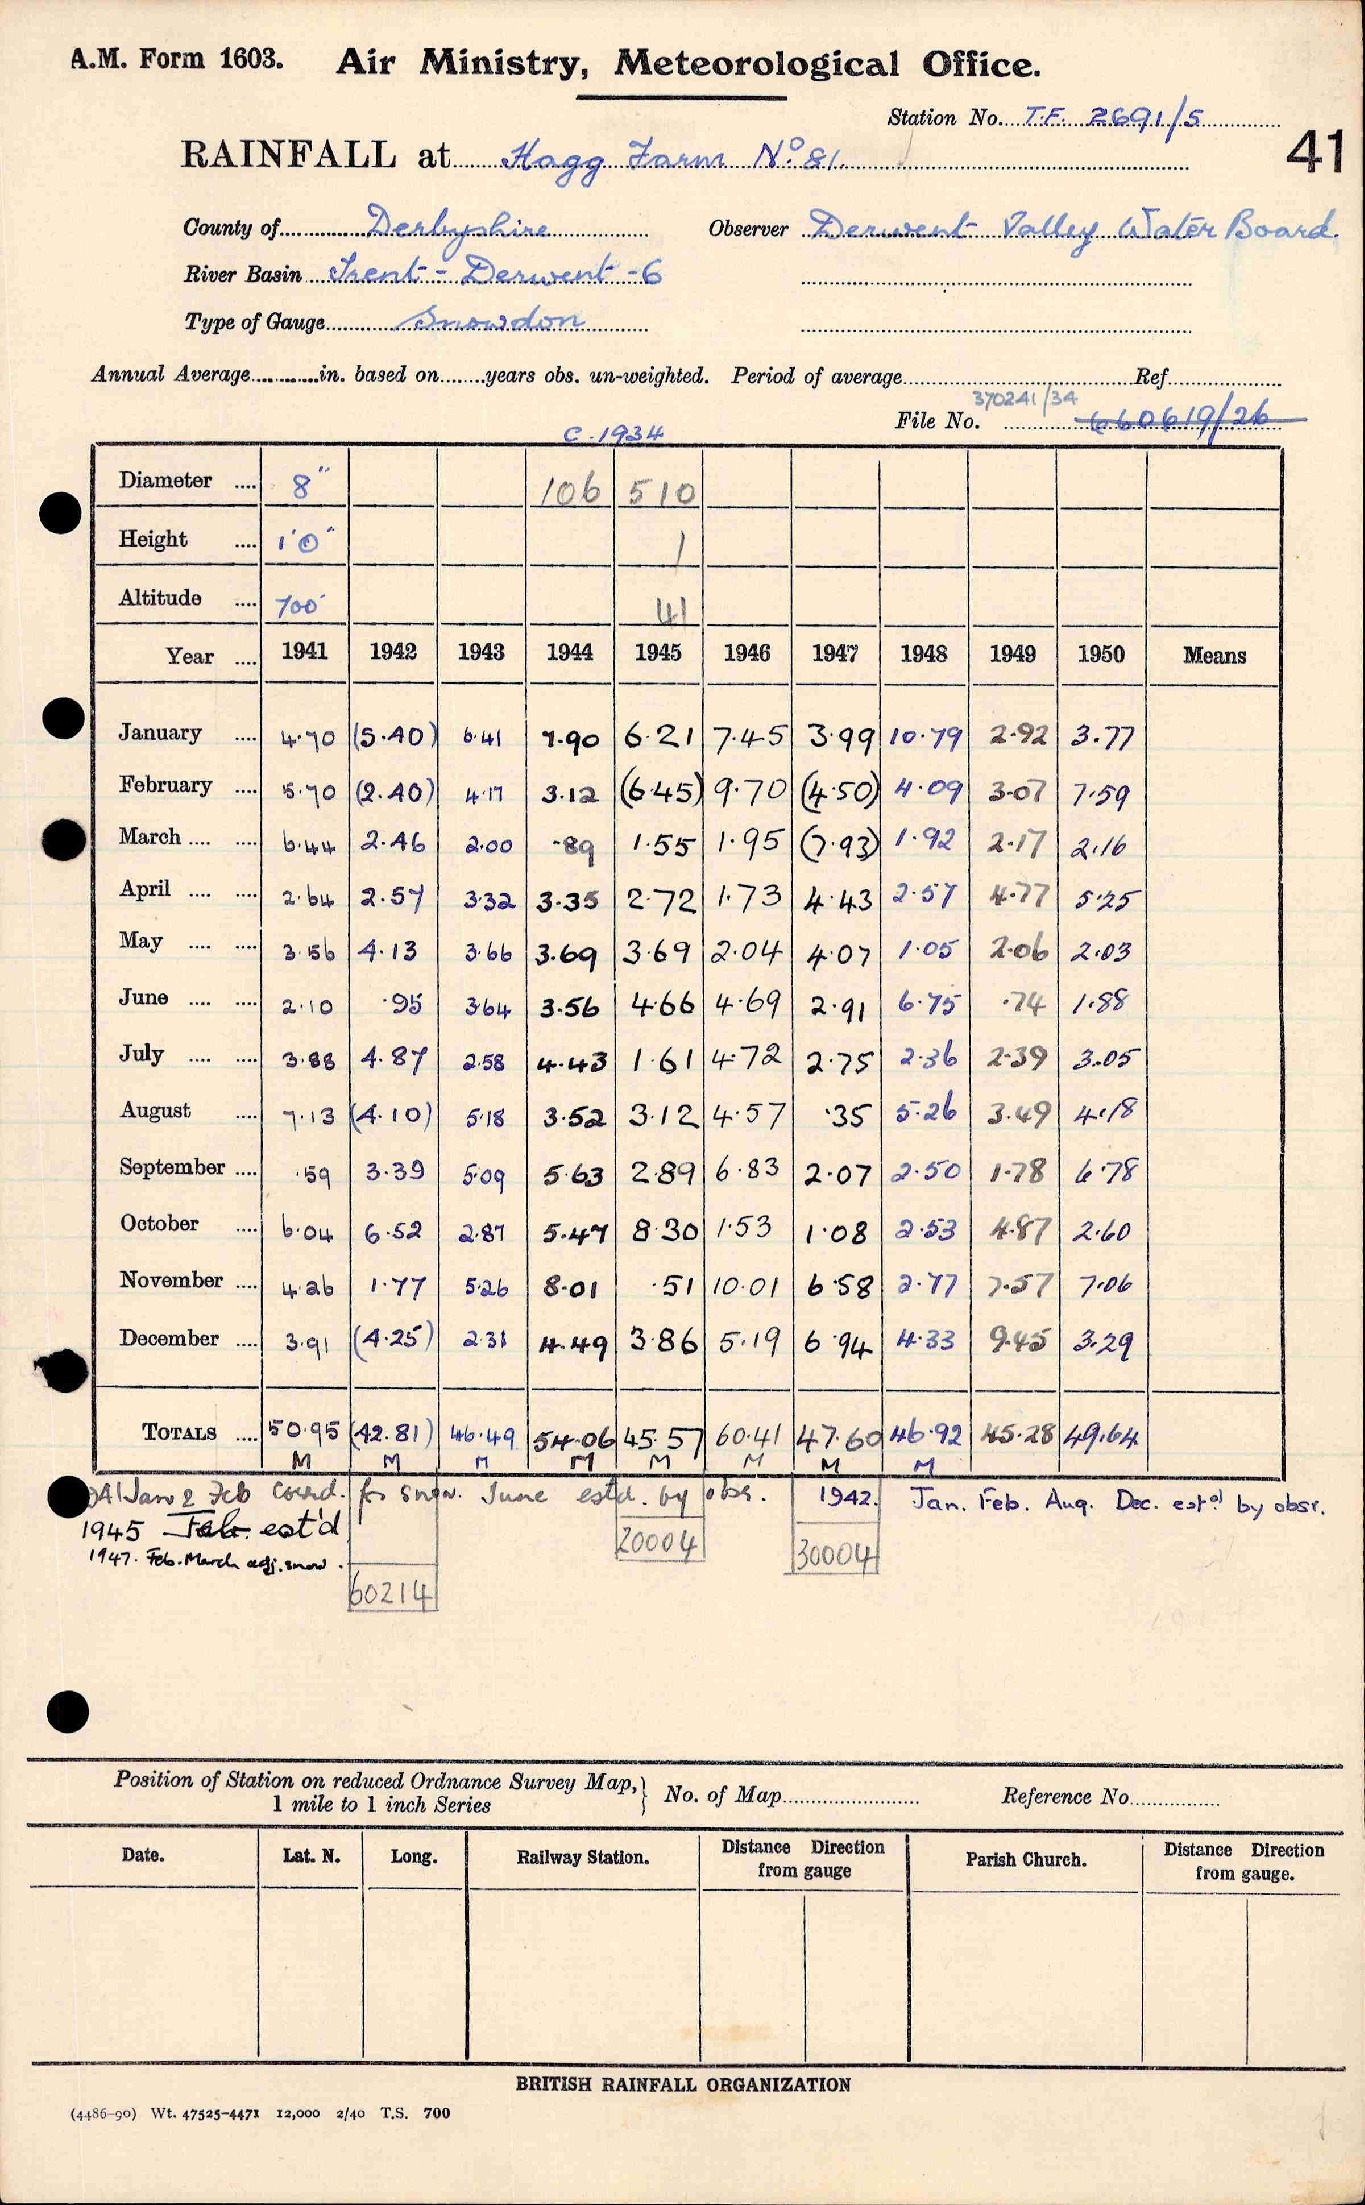 A.M. Form 1603. Air Ministry, Meteorological Office.
Station No. T.F. 2691/5
RAINFALL at Hagg Farm No. 81.
41
County of Derbyshire Observer Derwent Valley Water Board.
River Basin Trent - Derwent - 6
Type of Gauge Snowdon
Annual Average in. based on years obs. un-weighted. Period of average Ref
370241/34
File No. 660619/26
C. 1934
Diameter 8" 106 510
Height 1'0" 1
Altitude 700' 41
Year 1941 1942 1943 1944 1945 1946 1947 1948 1949 1950 Means
January 4.70 (5.40) 6.41 7.90 6.21 7.45 3.99 10.79 2.92 3.77
February 5.70 (2.40) 4.17 3.12 (6.45) 9.70 (4.50) 4.09 3.07 7.59
March 6.44 2.46 2.00 .89 1.55 1.95 (7.93) 1.92 2.17 2.16
April 2.64 2.57 3.32 3.35 2.72 1.73 4.43 2.57 4.77 5.25
May 3.56 4.13 3.66 3.69 3.69 2.04 4.07 1.05 2.06 2.03
June 2.10 .95 3.64 3.56 4.66 4.69 2.91 6.75 .74 1.88
July 3.88 4.87 2.58 4.43 1.61 4.72 2.75 2.36 2.39 3.05
August 7.13 (4.10) 5.18 3.52 3.12 4.57 .35 5.26 3.49 4.18
September .59 3.39 5.09 5.63 2.89 6.83 2.07 2.50 1.78 6.78
October 6.04 6.52 2.87 5.47 8.30 1.53 1.08 2.53 4.87 2.60
November 4.26 1.77 5.26 8.01 .51 10.01 6.58 2.77 7.57 7.06
December 3.91 (4.25) 2.31 4.49 3.86 5.19 6.94 4.33 9.45 3.29
TOTALS 50.95 (42.81) 46.49 54.06 45.57 60.41 47.60 46.92 45.28 49.64
M M M M M M M M
41 Jan & Feb corrd. for snow. June estd. by obs. 1942. Jan. Feb. Aug. Dec. estd. by obsr.
1945 Feb. est'd
20004
1947. Feb. March adj. snow. 30004
60214
Position of Station on reduced Ordnance Survey Map, 1 mile to 1 inch Series } No. of Map Reference No.
Date. Lat. N. Long. Railway Station. Distance Direction from gauge Parish Church. Distance Direction from gauge.
BRITISH RAINFALL ORGANIZATION
(4486-90) Wt. 47525-4471 12,000 2/40 T.S. 700